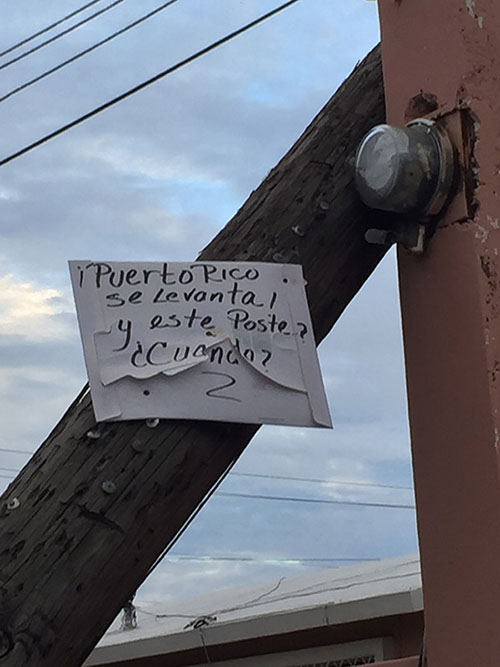 ¡Puerto Rico
se Levanta!
y este Poste?
¿Cuando?